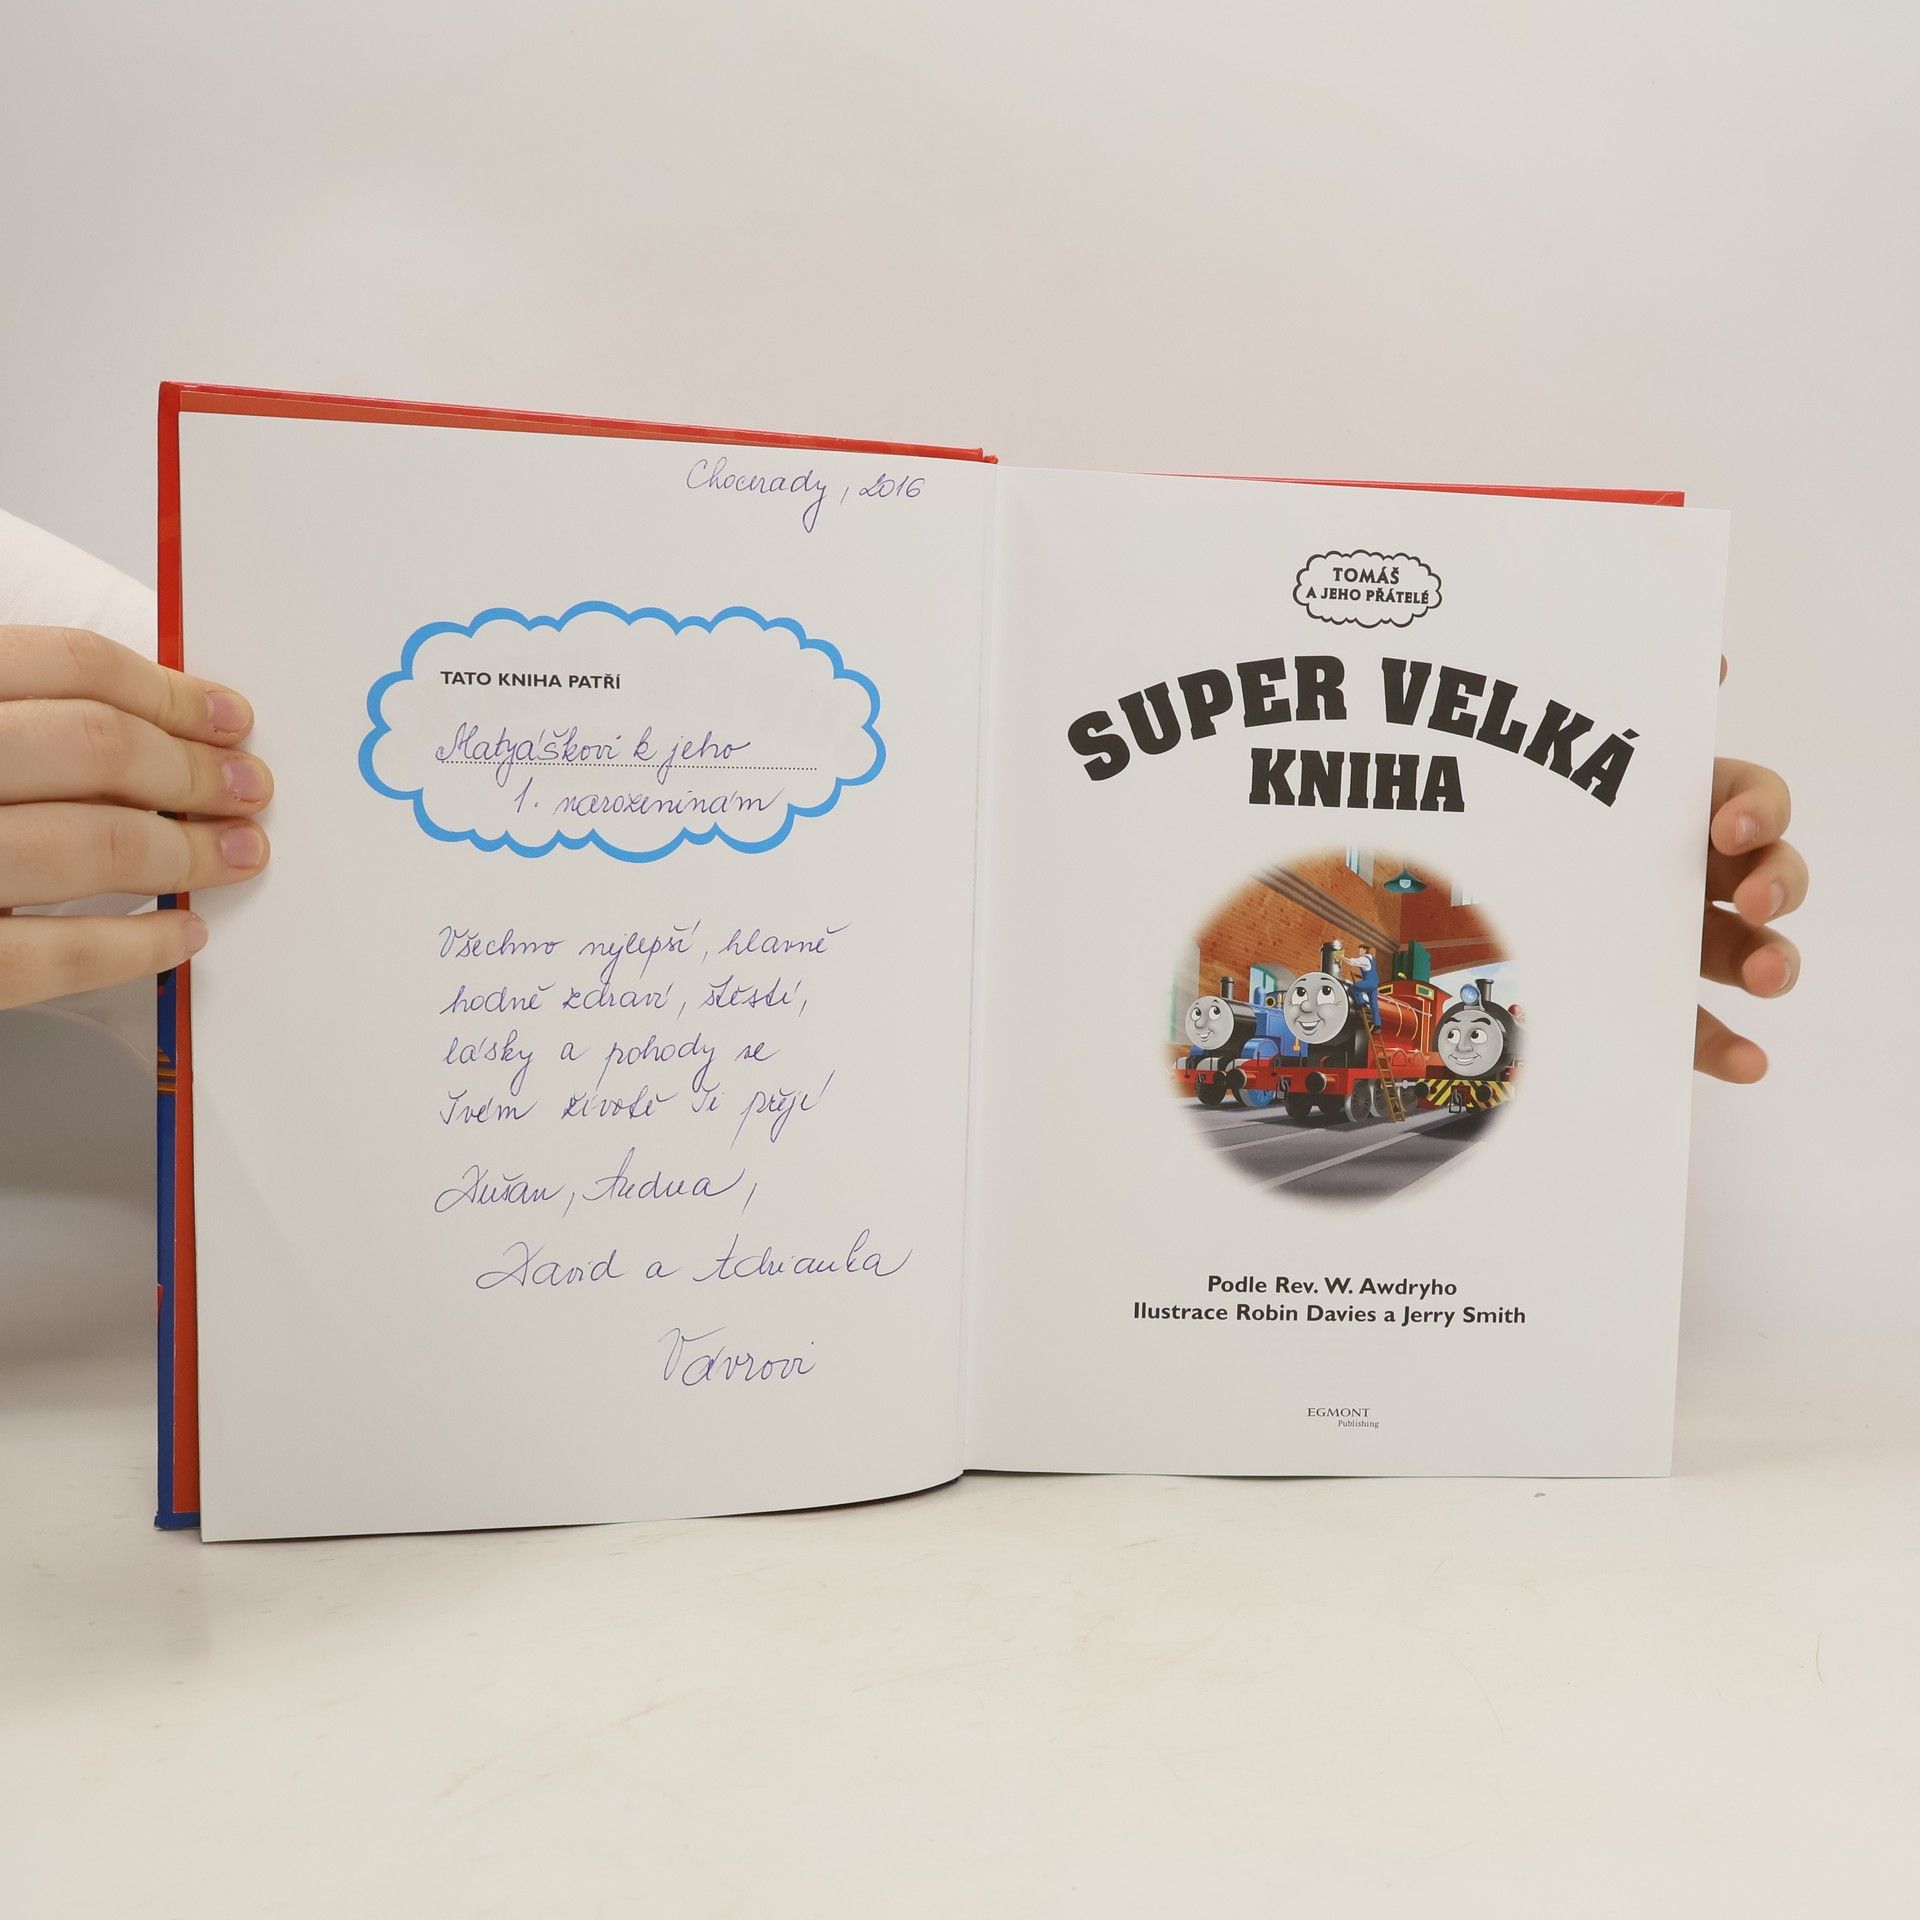 Chocerady, 2016
TATO KNIHA PATŘÍ
Matyáškovi k jeho
1. narozeninám
Všechno nejlepší, hlavně
hodně zdraví, štěstí,
lásky a pohody ve
Tvém životě Ti přejí
Dušan, Andrea,
David a Adrianka
Vávrovi
TOMÁŠ
A JEHO PŘÁTELÉ
SUPER VELKÁ
KNIHA
Podle Rev. W. Awdryho
Ilustrace Robin Davies a Jerry Smith
EGMONT
Publishing